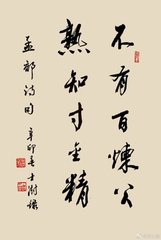 不有百炼公
熟知寸金精
孟郊诗句 辛卯春